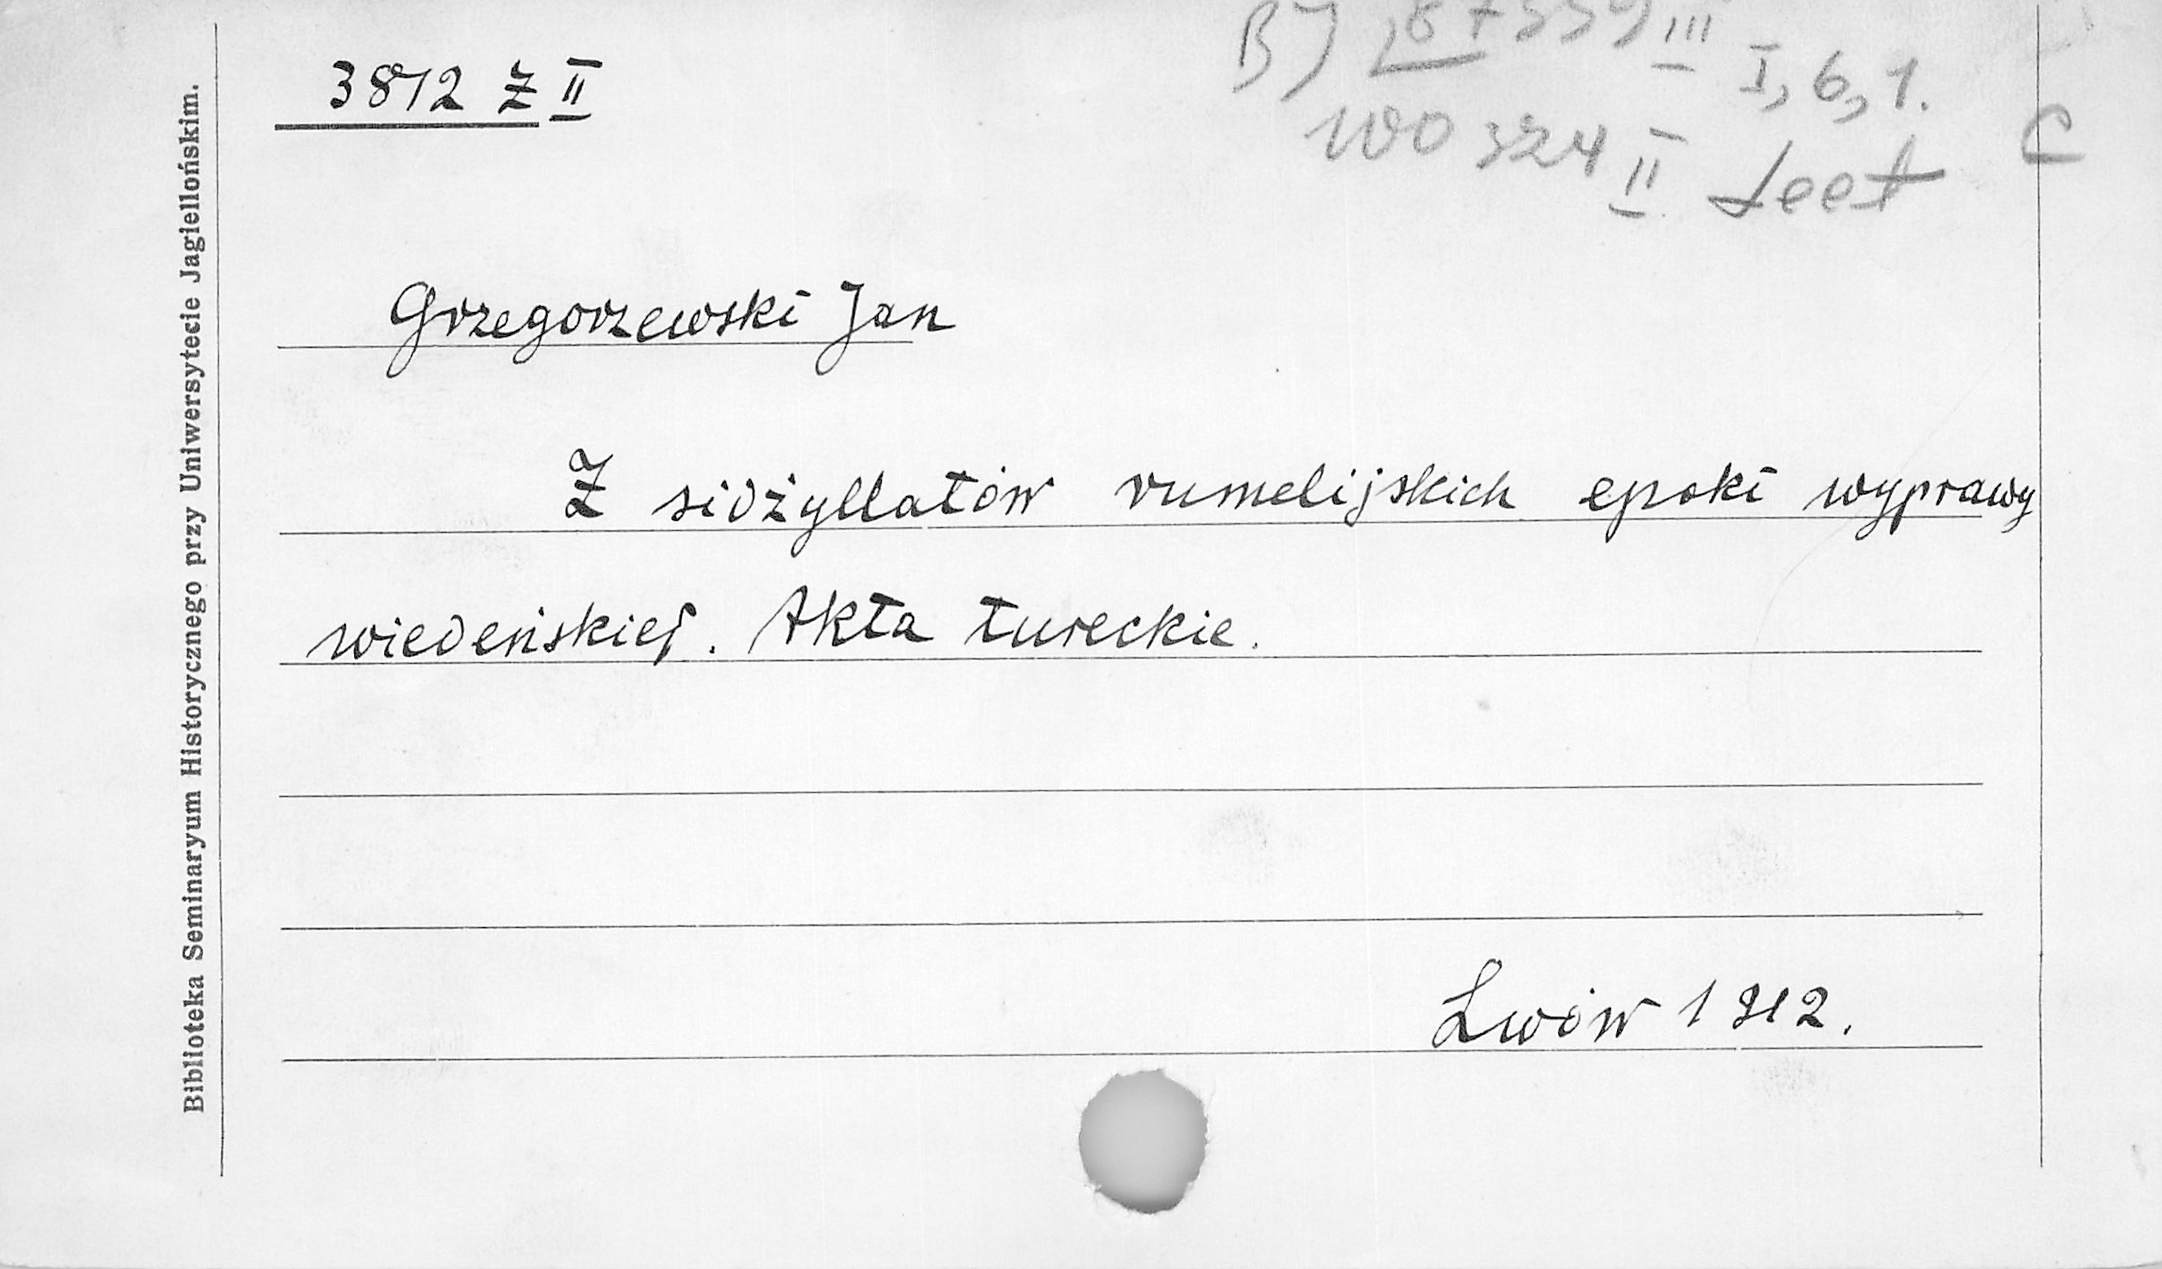 3872 Z II
BJ 187339 III I, 6, 1.
100324 II Leet C
Grzegorzewski Jan
Z sidżyllatów rumelijskich epoki wyprawy
wiedeńskiej. Akta tureckie.
Lwów 1912.
Biblioteka Seminaryum Historycznego przy Uniwersytecie Jagiellońskim.